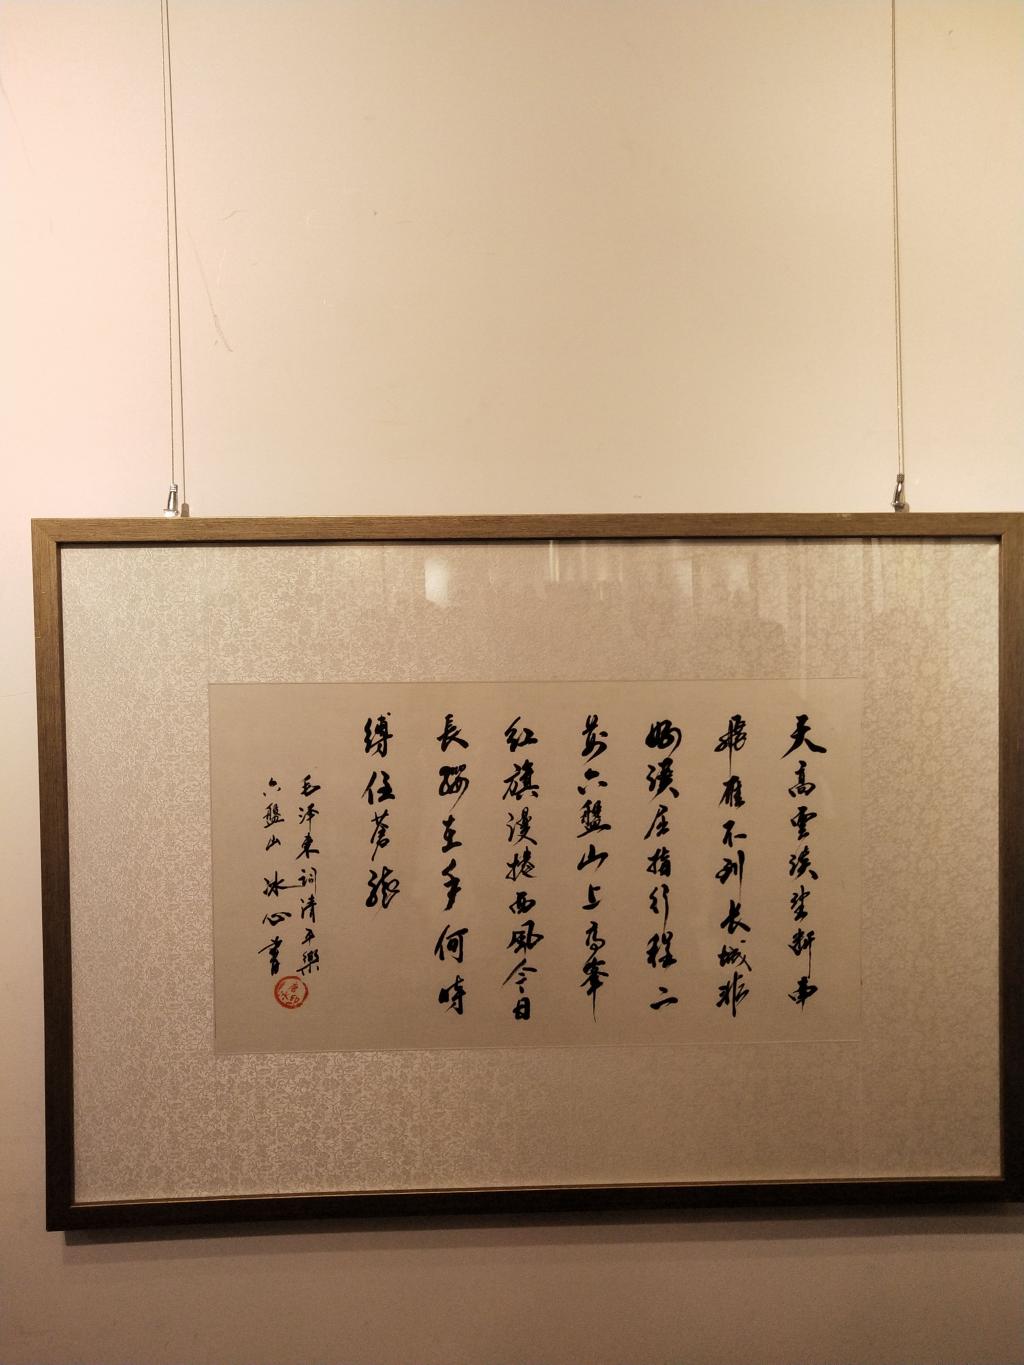 天高雲淡望斷南
飛雁不到長城非
好漢屈指行程二
萬六盤山上高峯
紅旗漫捲西風今日
長纓在手何時
縛住蒼龍
毛泽东词清平樂
六盤山 冰心書